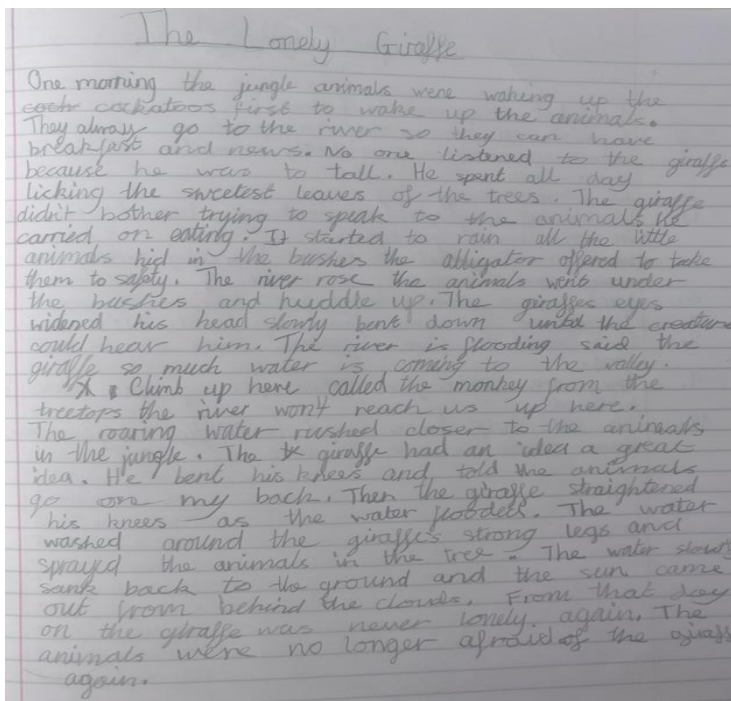 The Lonely Giraffe
One morning the jungle animals were waking up the
cockatoos first to wake up the animals.
They always go to the river so they can have
breakfast and news. No one listened to the giraffe
because he was to tall. He spent all day
licking the sweetest leaves of the trees. The giraffe
didn't bother trying to speak to the animals he
carried on eating. It started to rain all the little
animals hid in the bushes the alligator offered to take
them to safety. The river rose the animals went under
the bushes and huddle up. The giraffes eyes
widened his head slowly bent down until the creature
could hear him. The river is flooding said the
giraffe so much water is coming to the valley.
Climb up here called the monkey from the
treetops the river won't reach us up here.
The roaring water rushed closer to the animals
in the jungle. The giraffe had an idea a great
idea. He bent his knees and told the animals
go on my back. Then the giraffe straightened
his knees as the water floodets. The water
washed around the giraffe's strong legs and
sprayed the animals in the tree. The water slowly
sank back to the ground and the sun came
out from behind the clouds. From that day
on the giraffe was never lonely again. The
animals were no longer afraid of the giraff
again.